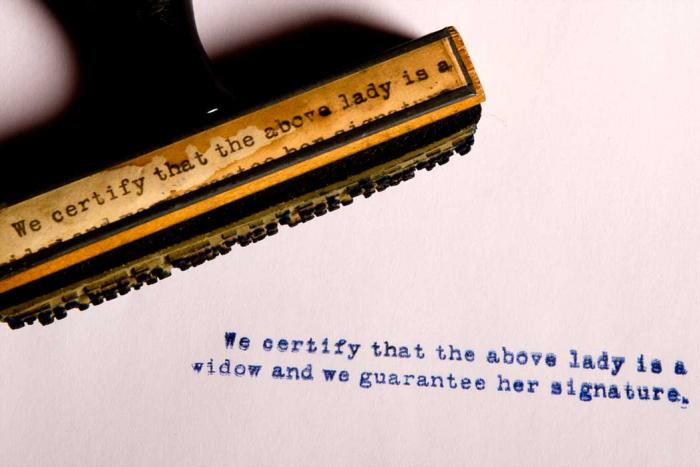 We certify that the above lady is a
We certify that the above lady is a
widow and we guarantee her signature.